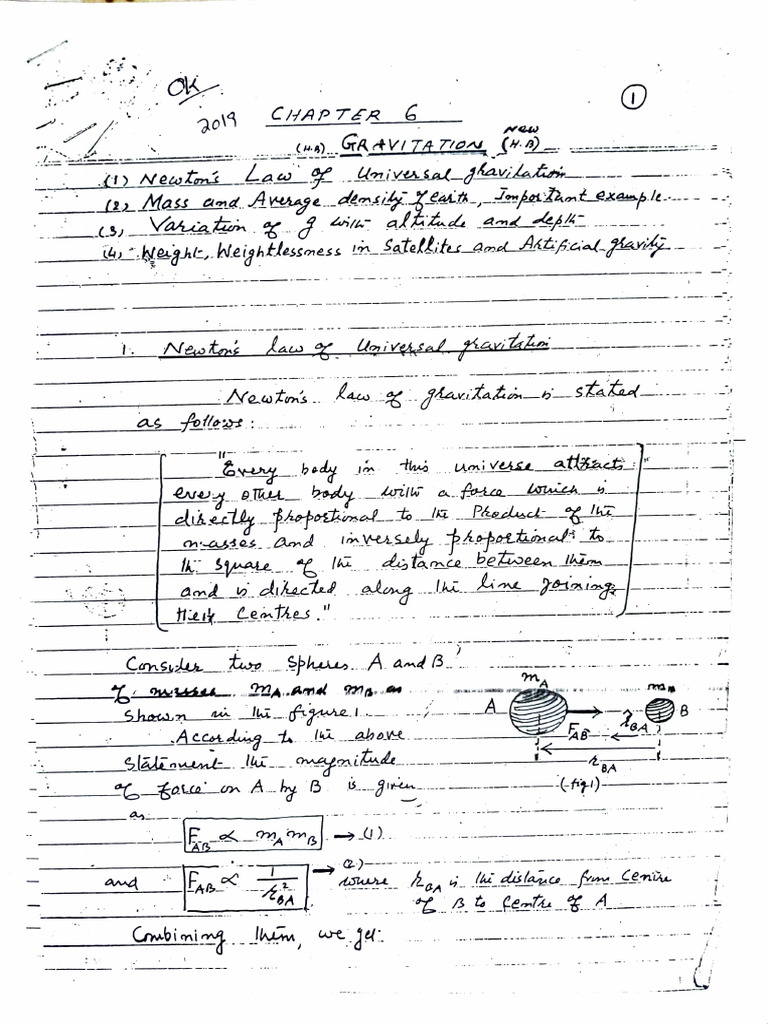 OK
2019
CHAPTER 6
(1)
(H.B) GRAVITATION NEW (H.B)
(1) Newton's Law of Universal gravitation
(2) Mass and Average density of earth, Important example.
(3) Variation of g with altitude and depth
(4) Weight, Weightlessness in Satellites and Artificial gravity
1. Newton's law of Universal gravitation
Newton's law of gravitation is stated
as follows:
"Every body in this universe attracts
every other body with a force which is
directly proportional to the Product of the
masses and inversely proportional to
the square of the distance between them
and is directed along the line joining
their Centres."
Consider two Spheres A and B
of masses mA and mB as
shown in the figure 1.
According to the above
statement the magnitude
of force on A by B is given
as
mA
mB
A
B
FAB
r̂BA
rBA
(fig 1)
FAB ∝ mA mB → (1)
and FAB ∝ 1/r²BA → (2)
where rBA is the distance from Centre
of B to Centre of A
Combining them, we get: